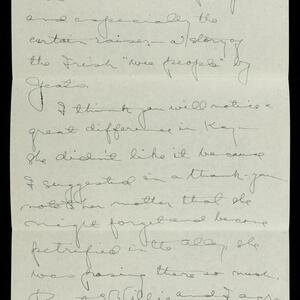 and especially the
curtain raiser — a story of
the Irish "wee people" by
Yeats.
I think you will notice a
great difference in Kay —
she didn't like it because
I suggested in a thank-you
note to her mother that she
might forget and become
petrified in the alley, she
was posing there so much.
and